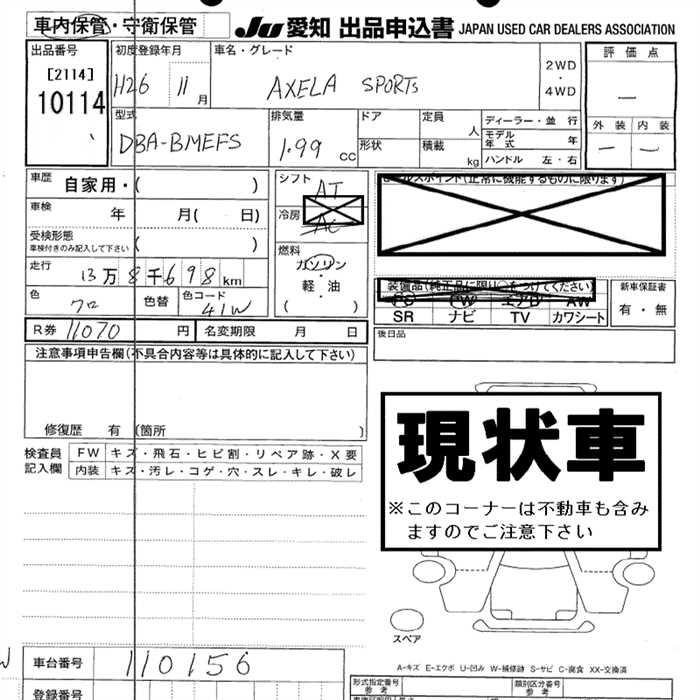 車内保管・守衛保管 JU 愛知 出品申込書 JAPAN USED CAR DEALERS ASSOCIATION
出品番号 初度登録年月 車名・グレード 評価点
[2114] H26 11月 AXELA SPORTS 2WD・4WD —
10114
型式 排気量 ドア 定員 人 ディーラー・並行 外装 内装
DBA-BMEFS 1.99cc 形状 積載 kg モデル年式 年 — —
ハンドル 左・右
車歴 自家用・( ) シフト AT
車検 年 月( 日) 冷房 AC
受検形態 ( )
車検付きのみ記入して下さい
燃料 ガソリン・軽油 ( )
走行 13万8千698km
装備品(純正品に限り○をつけてください) 新車保証書
PS PW エアB AW 有・無
色 クロ 色替 色コード 41W
SR ナビ TV カワシート
R券 11070円 名変期限 月 日 後日品
注意事項申告欄(不具合内容等は具体的に記入して下さい)
修復歴 有 (箇所 )
現状車
※このコーナーは不動車も含み
ますのでご注意下さい
検査員記入欄 FW キズ・飛石・ヒビ割・リペア跡・X要
内装 キズ・汚レ・コゲ・穴・スレ・キレ・破レ
スペア
A-キズ E-エクボ U-凹み W-補修跡 S-サビ C-腐食 XX-交換済
車台番号 110156
登録番号
形式指定番号 参考 類別区分番号 参考